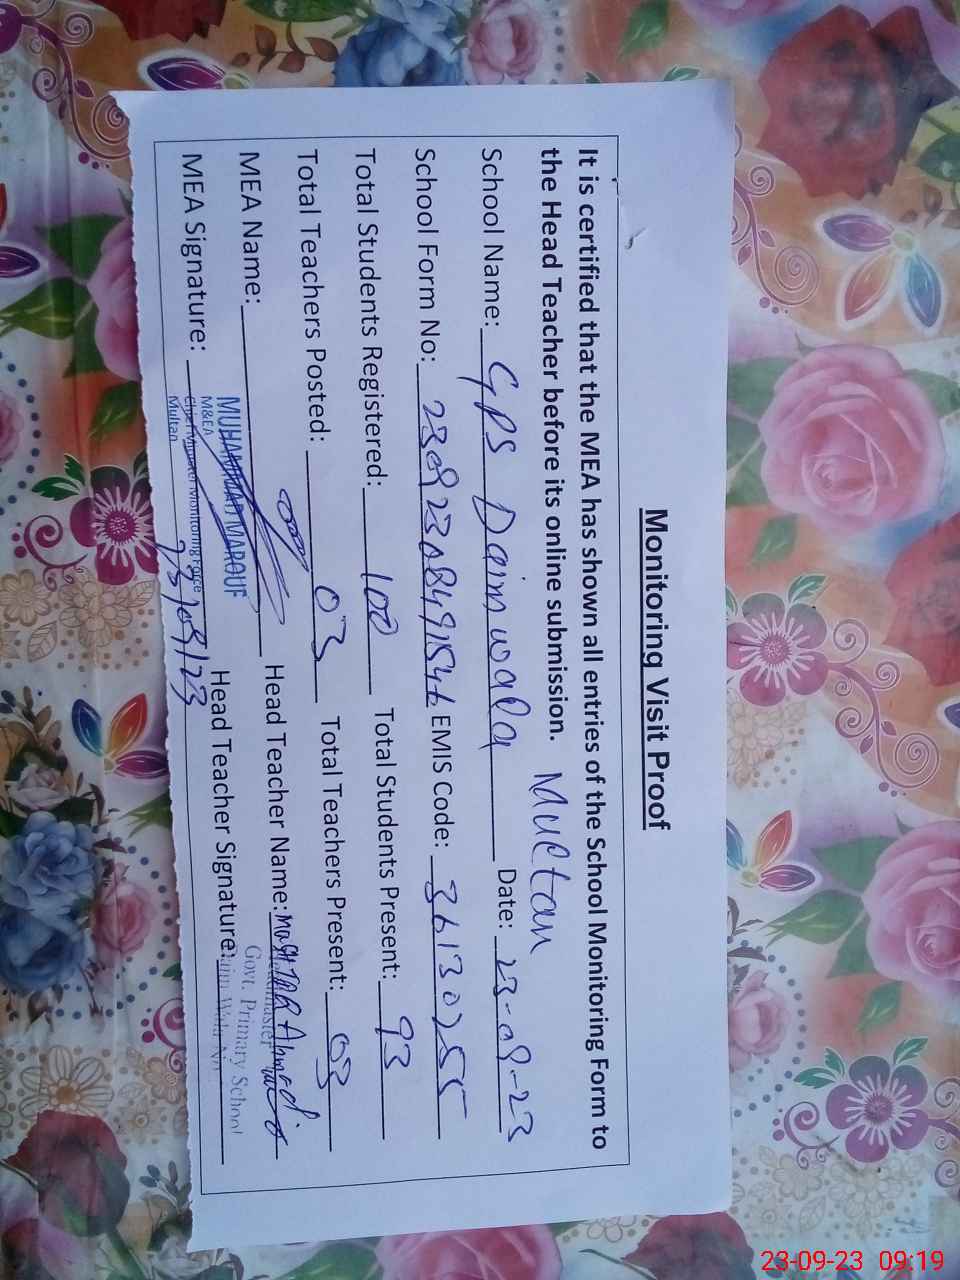 Monitoring Visit Proof
It is certified that the MEA has shown all entries of the School Monitoring Form to
the Head Teacher before its online submission. Multan
School Name: GPS Daim wala Date: 23-09-23
School Form No: EMIS Code: 36130255
Total Students Registered: 100 Total Students Present: 93
Total Teachers Posted: 03 Total Teachers Present: 03
MEA Name: Head Teacher Name: Ahmad
MUHAMMAD MAROUF
M&EA
Chief Minister Monitoring Force
Multan
MEA Signature: Head Teacher Signature:
Govt. Primary School
23-09-23 09:19